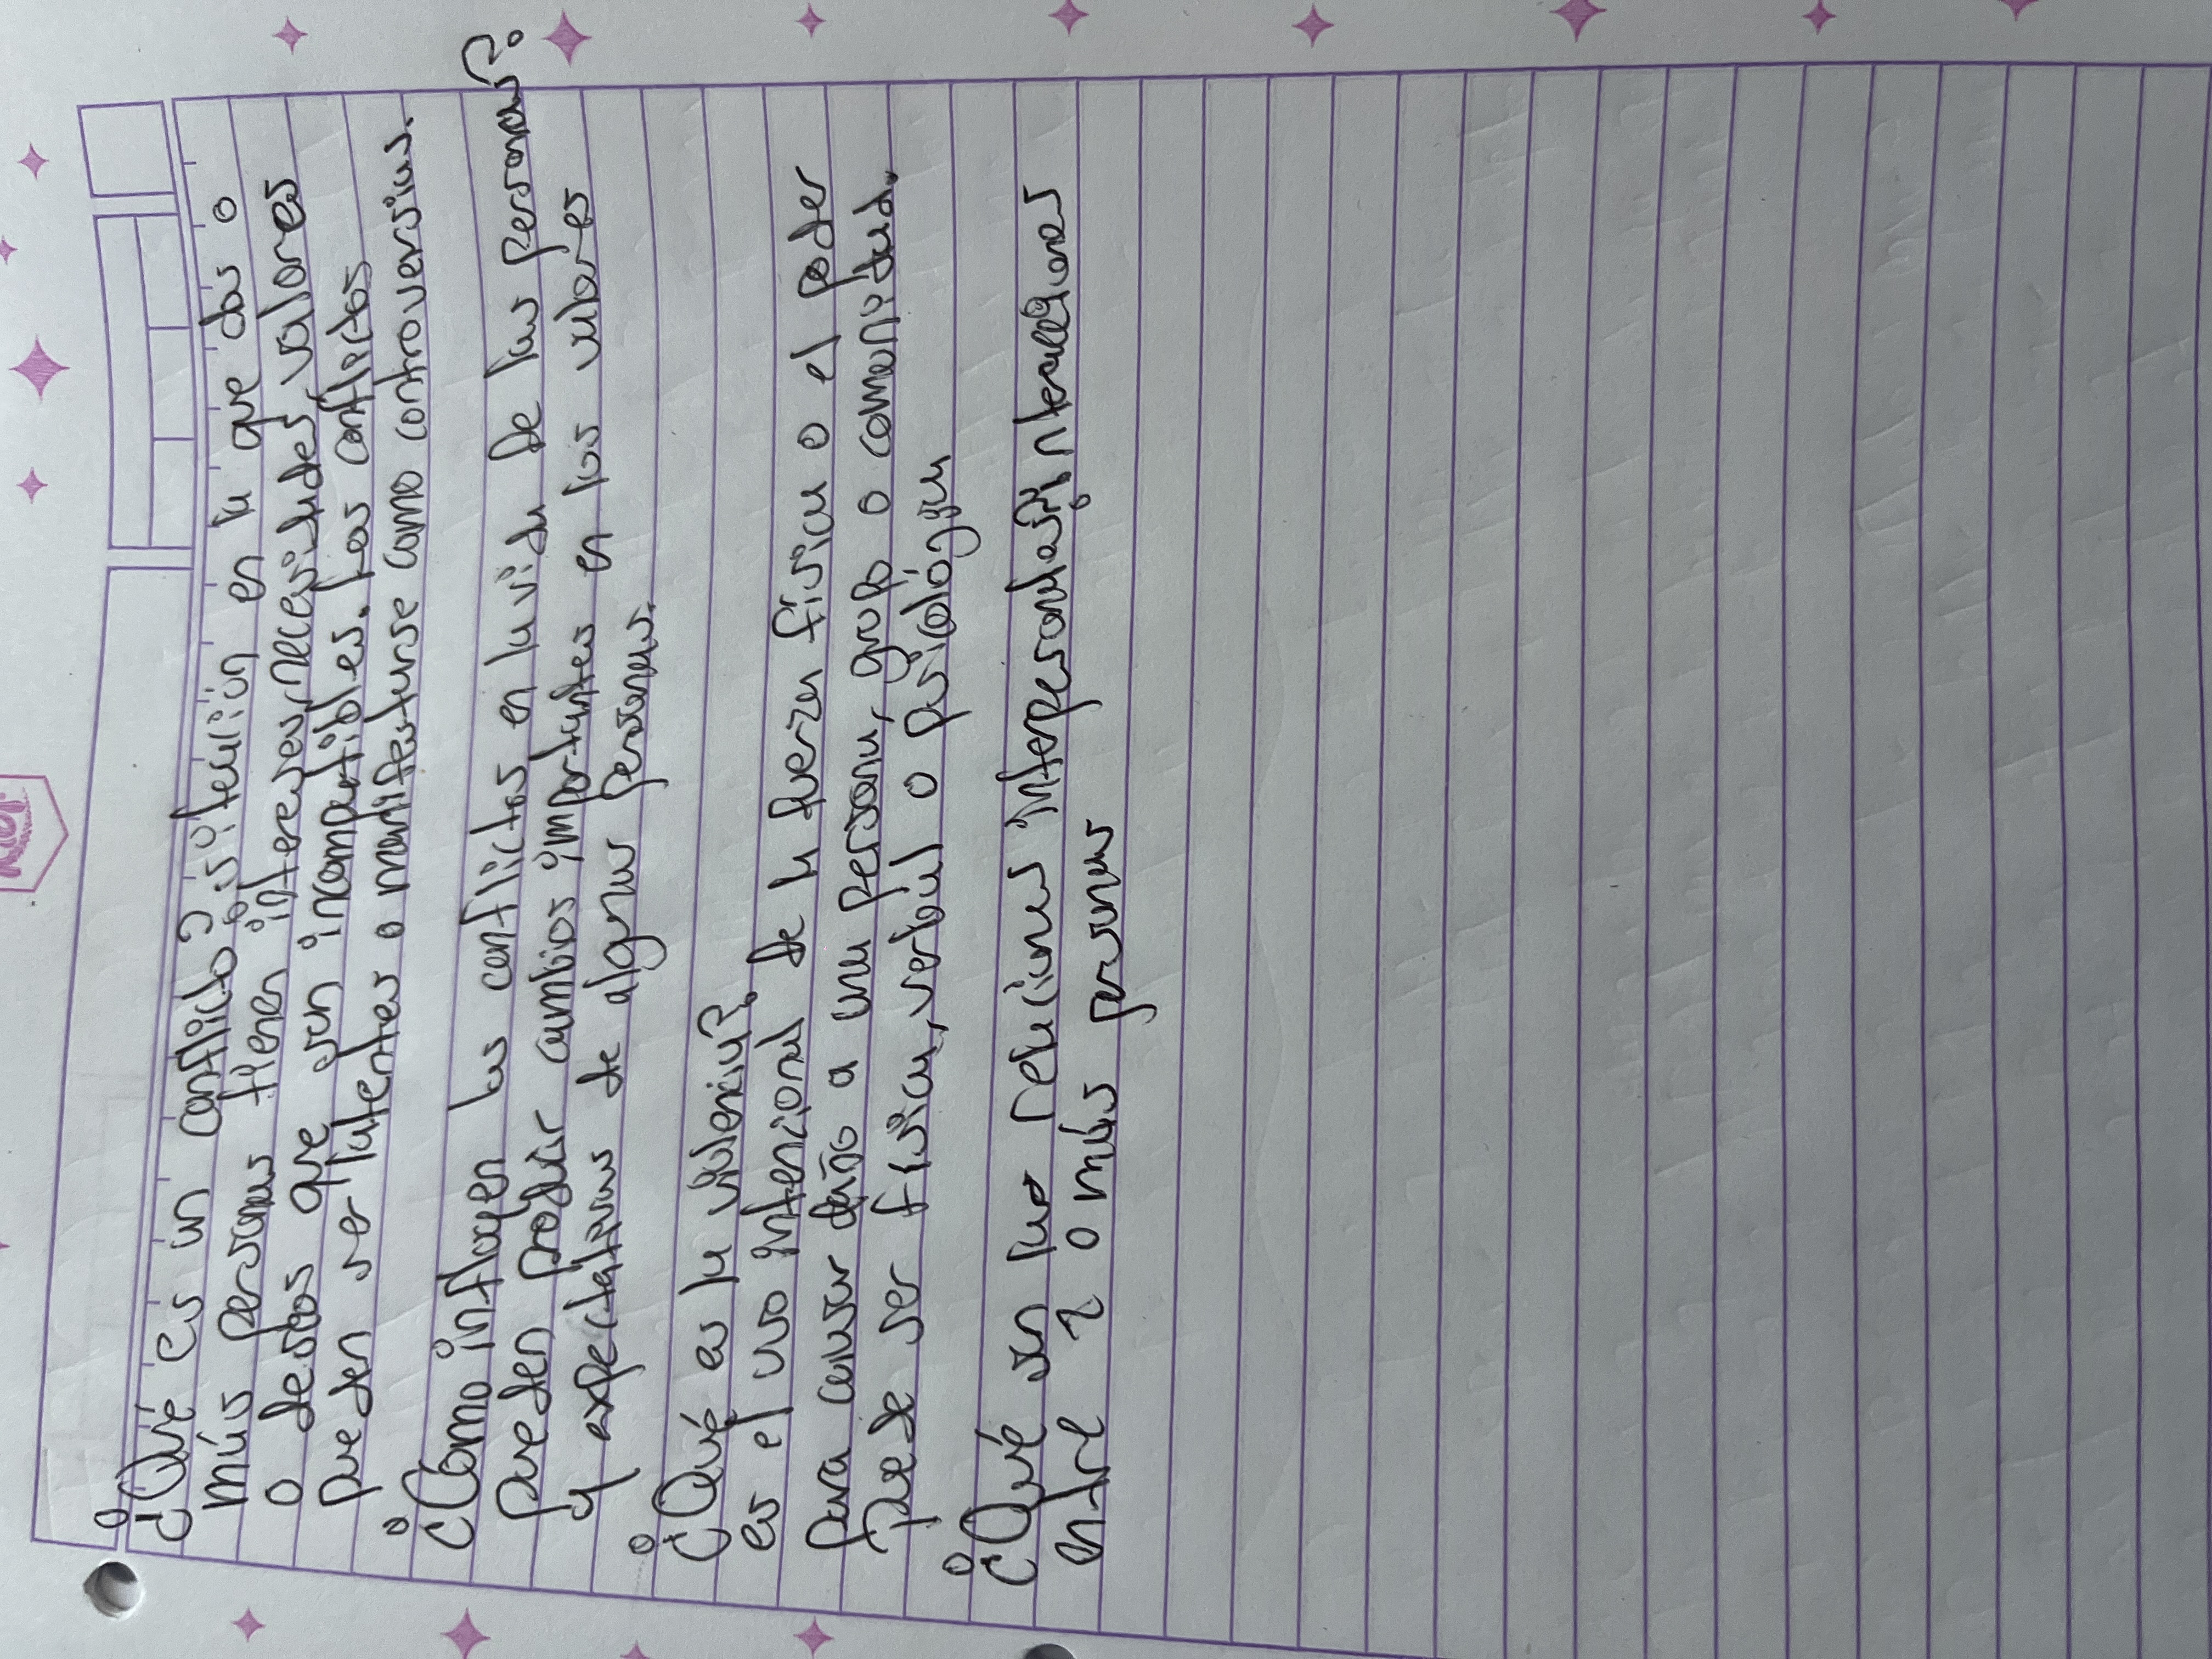 ¿Qué es un conflicto?: situación en la que dos o
más personas tienen intereses, necesidades, valores
o deseos que son incompatibles. Los conflictos
pueden ser latentes o manifestarse como controversias.
¿Cómo influyen los conflictos en la vida de las personas?
pueden producir cambios importantes en los valores
y expectativas de algunas personas.
¿Qué es la violencia?
es el uso intencional de la fuerza física o el poder
para causar daño a una persona, grupo o comunidad.
puede ser física, verbal o psicológica
¿Qué son las relaciones interpersonales? interacciones
entre 2 o más personas